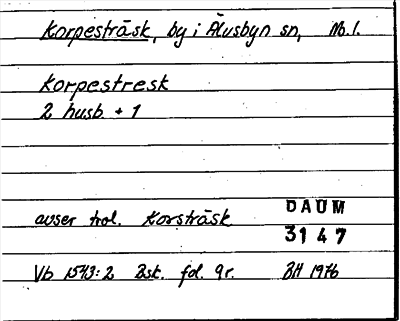 Korpesträsk, by i Älvsbyn sn, Nb.l.
Korpestresk
2 husb. + 1
avser trol. Korsträsk
DAUM
3147
Vb 1543:2 Bsk. fol. 9r. BH 1976